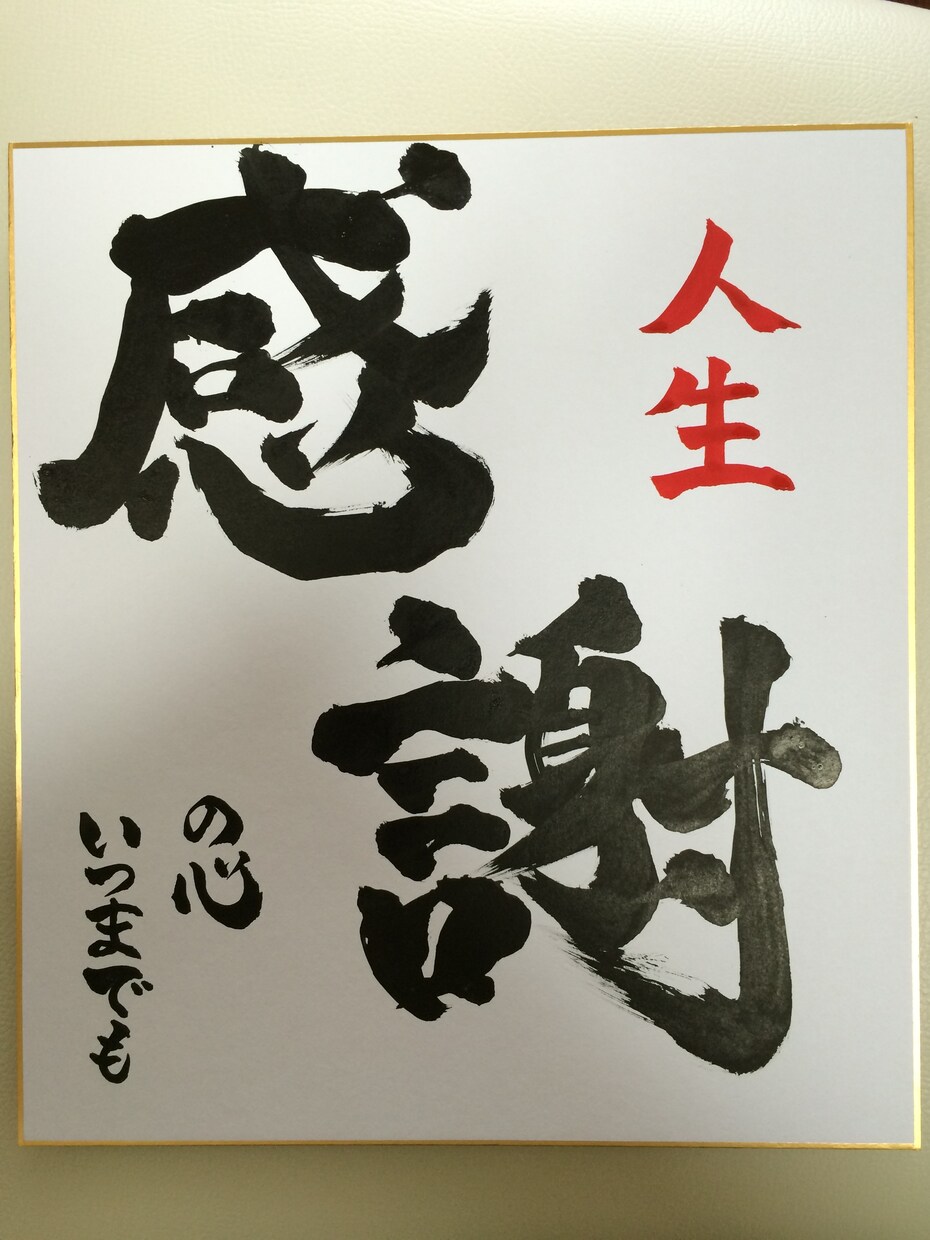 人生
感謝
の心
いつまでも